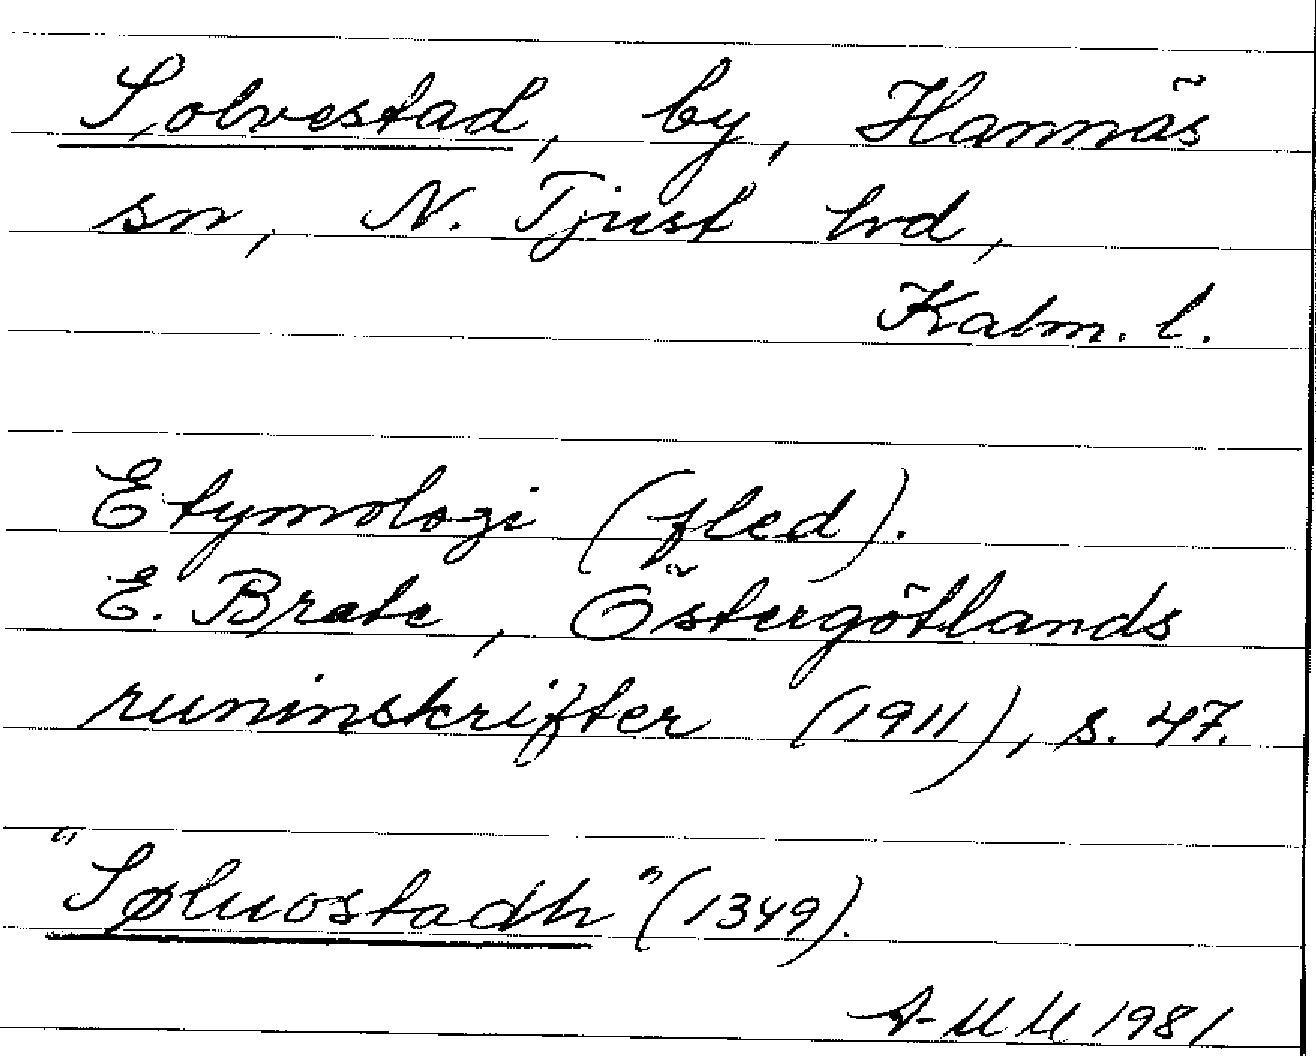 Solvestad, by, Hannäs
sn, N. Tjust hrd,
Kalm. l.
Etymologi (fled).
E. Brate, Östergötlands
runinskrifter (1911), s. 47.
"Søluostadh" (1349).
A-MM 1981